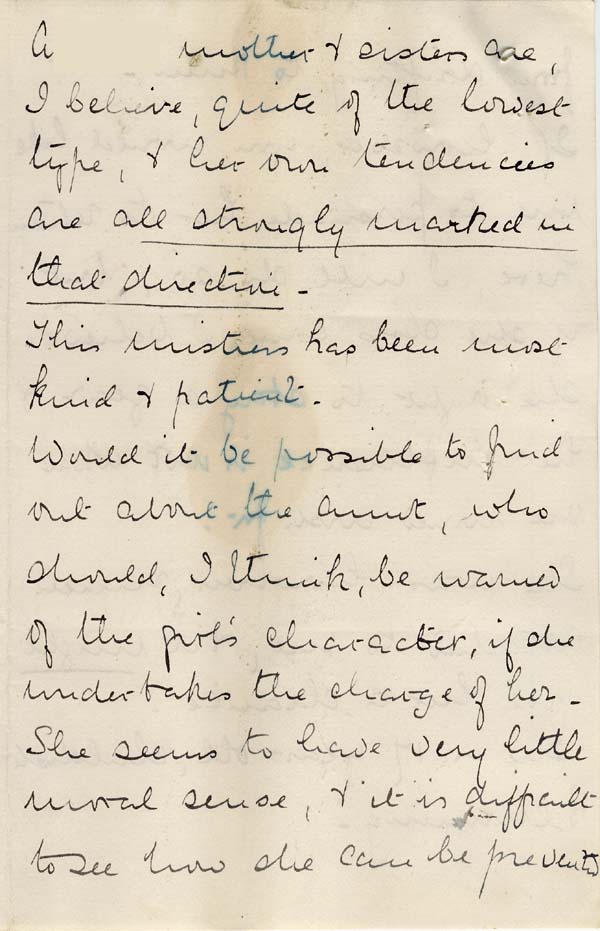 A mother & sisters are,
I believe, quite of the lowest
type, & her own tendencies
are all strongly marked in
that direction -
This mistress has been most
kind & patient.
Would it be possible to find
out about the aunt, who
should, I think, be warned
of the girl's character, if she
undertakes the charge of her -
She seems to have very little
moral sense, & it is difficult
to see how she can be prevented